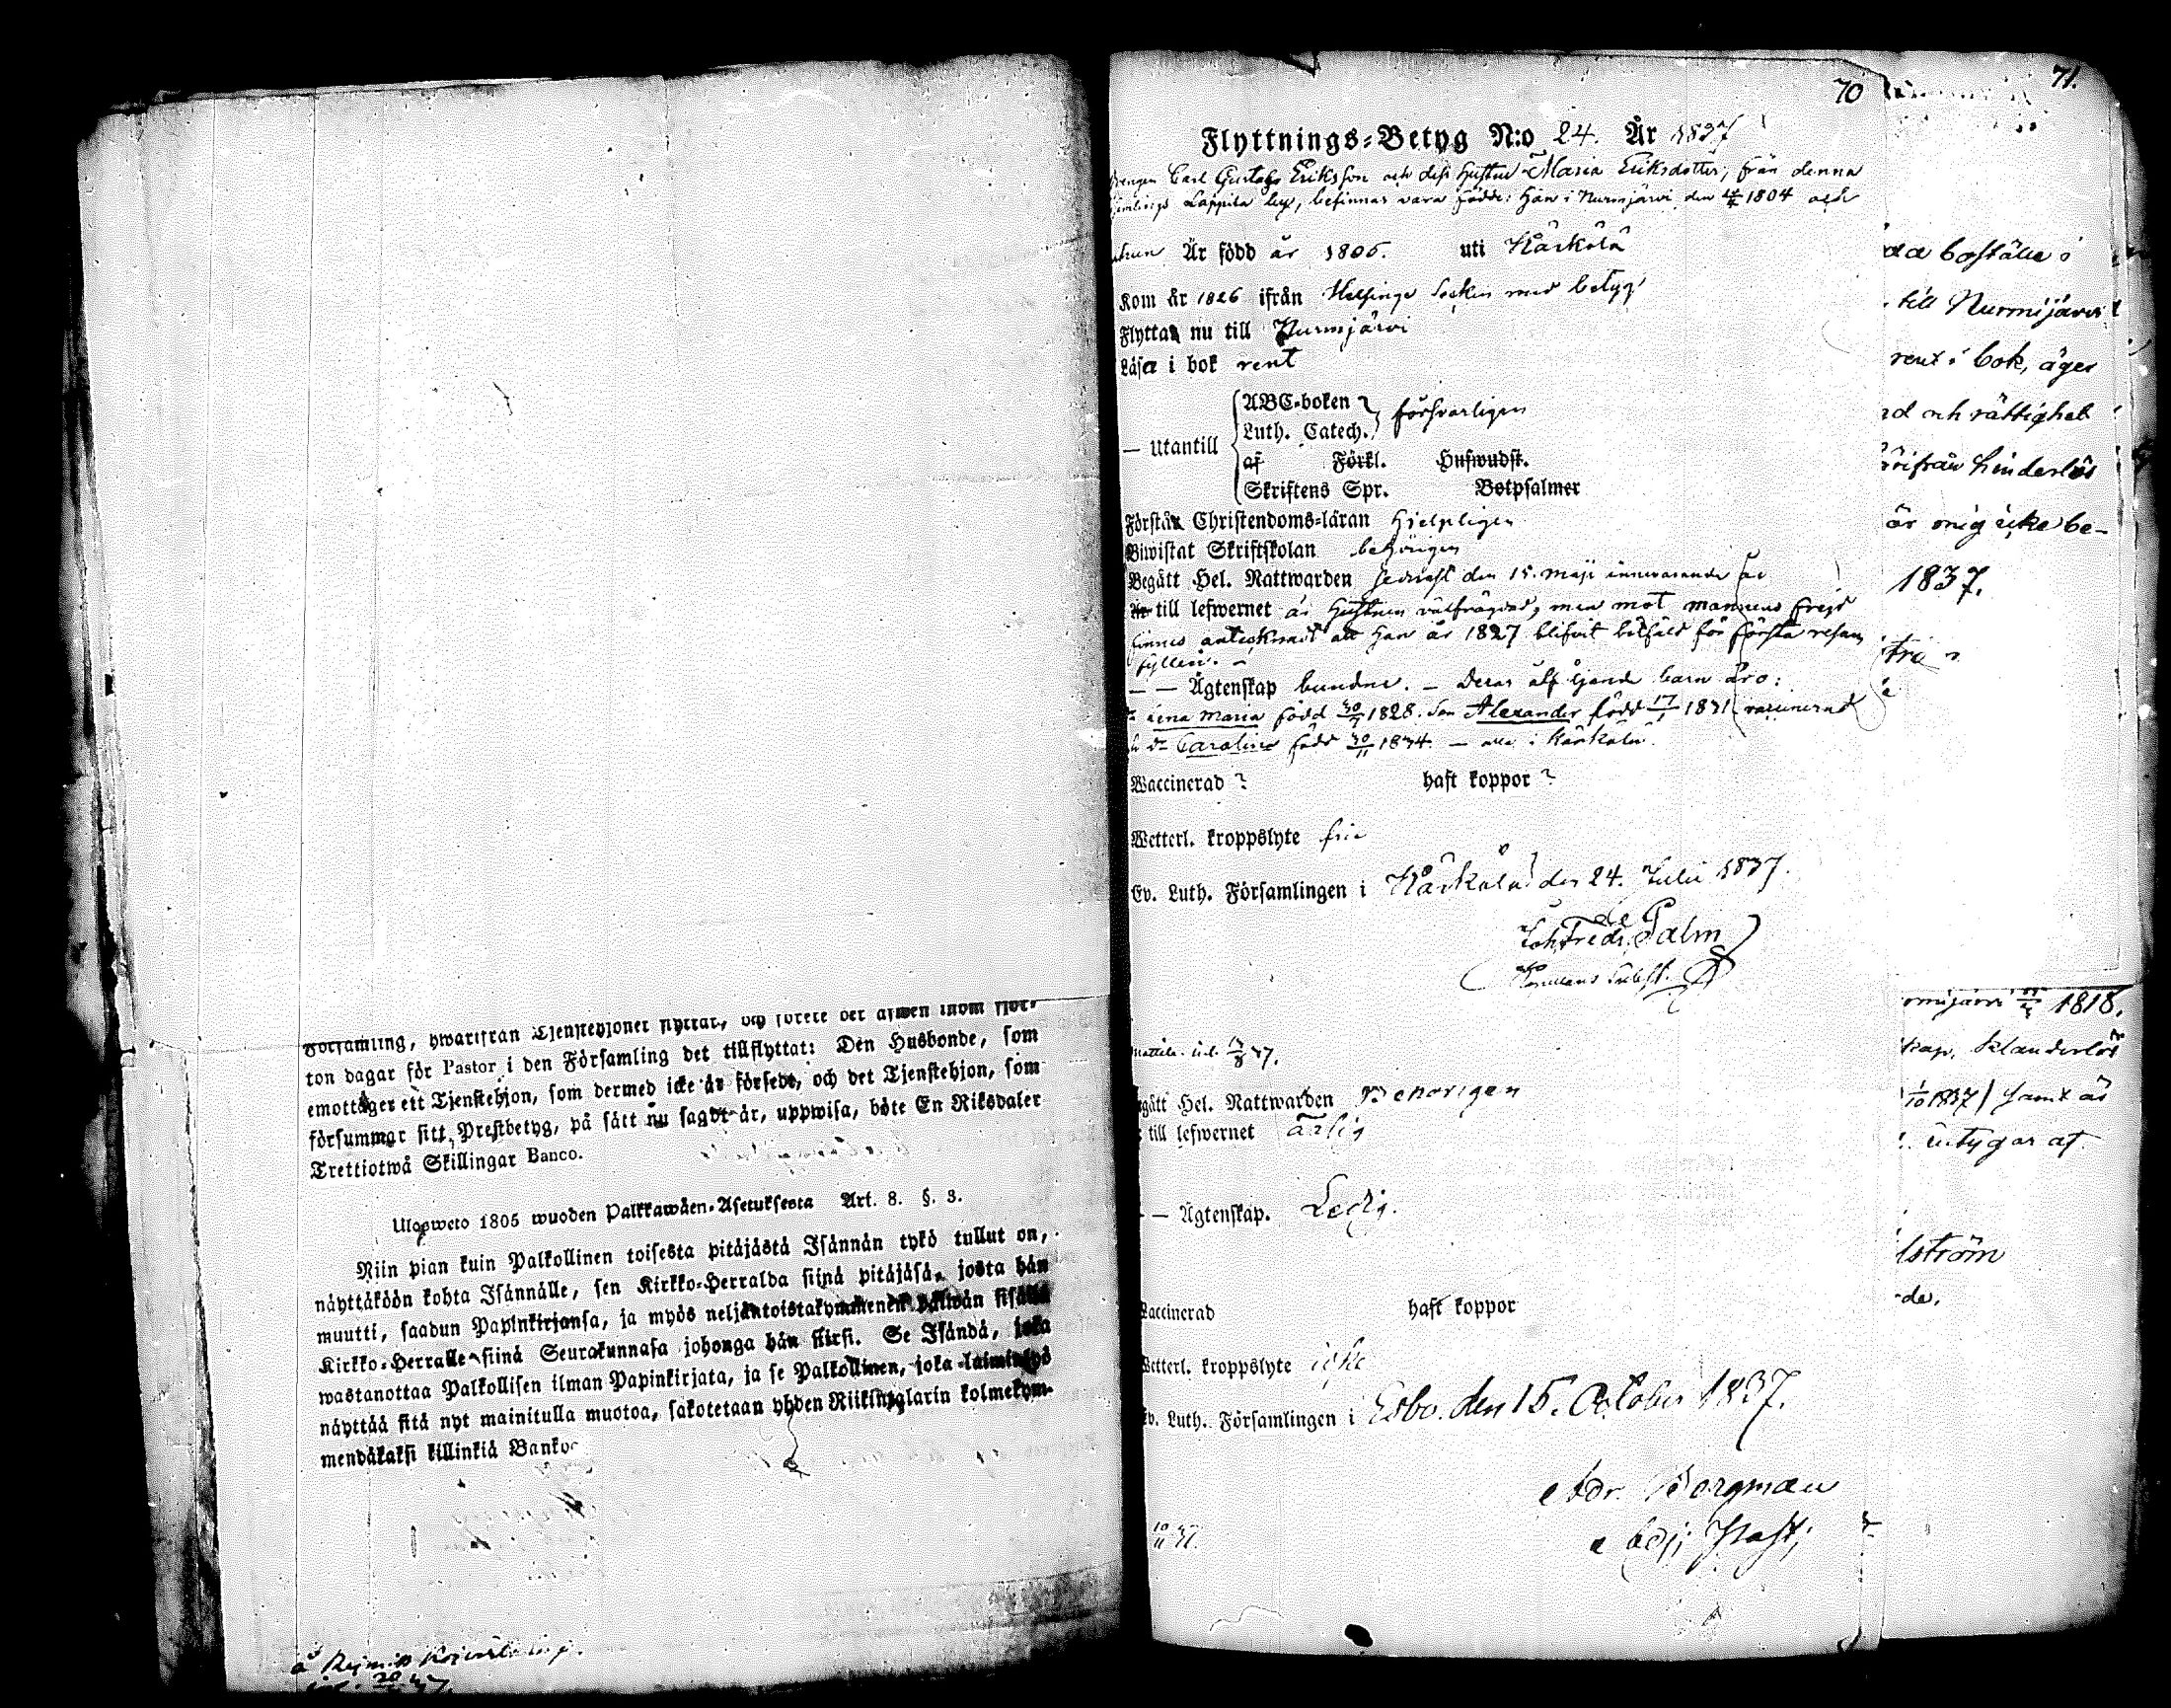 Församling, hwarifrån Tjenstehjonet flyttat, och förete det äfwen inom fjor-
ton dagar för Pastor i den Församling det tillflyttat: Den Husbonde, som
emottager ett Tjenstehjon, som dermed icke är försedt, och det Tjenstehjon, som
försummar sitt Prestbetyg, på sätt nu sagdt är, uppwisa, böte En Riksdaler
Trettiotwå Skillingar Banco.
Ulosweto 1805 wuoden Palkkawäen-Asetuksesta Art. 8. §. 3.
Niin pian kuin Palkollinen toisesta pitäjästä Isännän tykö tullut on,
näyttäköön kohta Isännälle, sen Kirkko-Herralda siinä pitäjäsä, josta hän
muutti, saadun Papinkirjansa, ja myös neljäntoistakymmenen päiwän sisällä
Kirkko-Herralle siinä Seurakunnasa johonga hän siirsi. Se Isändä, joka
wastanottaa Palkollisen ilman Papinkirjata, ja se Palkollinen, joka laiminlyö
näyttää sitä nyt mainitulla muotoa, sakotetaan yhden Riikinglarin kolmekym-
mendäkaksi killinkiä Banko
70
Flyttnings-Betyg N:o 24. År 1837
Carl Gustaf Eriksson och dess hustru Maria Eriksdotter, från denna
Lappila by, befinnas vara födde: Han i Nurmijärvi den 1804 och
hun Är född år 1806. uti Kärkölä
Kom år 1826 ifrån Helsinge Socken med betyg
Flytta nu till Nurmijärvi
Läsa i bok rent
— Utantill
ABC-boken
Luth. Catech. försvarligen
af Förkl. Hufwudst.
Skriftens Spr. Botpsalmer
Förstå Christendoms-läran Hjelpligen
Biwistat Skriftskolan behörigen
Begått Hel. Nattwarden sednast den 15. Maji innevarande år
Är till lefwernet är Hustrun välfrägdad, men mot mannens frejd
finnes antecknadt att Han år 1827 blifvit bötfäld för första resan
fylleri. —
— — Ägtenskap bundne. — Deras älj barn äro:
Lena Maria född 30 1828. Son Alexander född 17/1 1831 vaccinerad
Carolina född 30/11 1834. — alla i Kärkölä.
Waccinerad ? haft koppor ?
Wetterl. kroppslyte fria
Ev. Luth. Församlingen i Kärkölä den 24. Julii 1837.
Joh. Fredr. Palm
37.
Begått Hel. Nattwarden Behörigen
till lefwernet ärlig
— — Ägtenskap. Ledig.
Waccinerad haft koppor
Wetterl. kroppslyte icke
Ev. Luth. Församlingen i Esbo. den 15. October 1837.
Adr. Borgman
Adj. Past.
71.
boställe i
till Nurmijärvi
rent i bok, äger
och rättighet
härifrån hinderlös
är mig icke be-
1837.
1818.
klanderlös
1/10 1837) samt är
intygar af
lström